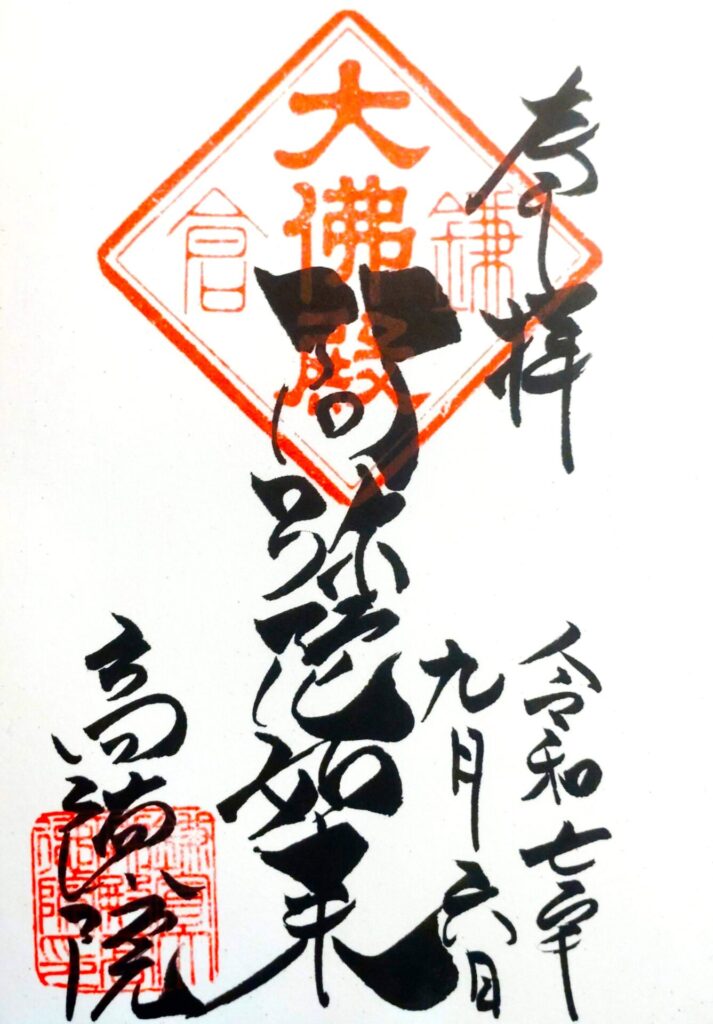 奉拝
令和七年
九月六日
鎌倉
大佛殿
阿弥陀如来
高徳院